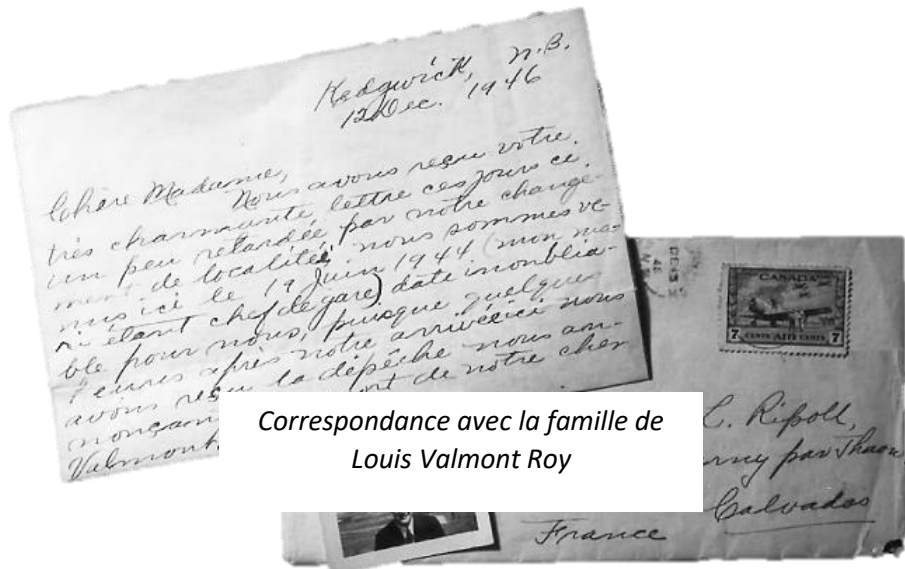 Kedgwick, N.B.
12 Dec. 1946
Chère Madame,
Nous avons reçu votre
très charmante lettre ces jours ci,
un peu retardée par notre change-
ment de localité, nous sommes ve-
nus ici le 19 Juin 1944 (mon ma-
ri étant chef de gare) date inoublia-
ble pour nous, puisque quelques
heures après notre arrivée ici nous
avons reçu la dépêche nous an-
nonçant ort de notre cher
Valmont
Correspondance avec la famille de
Louis Valmont Roy
CANADA
7 CENTS AIR CENTS 7
C. Ripoll,
par Thaon
Calvados
France